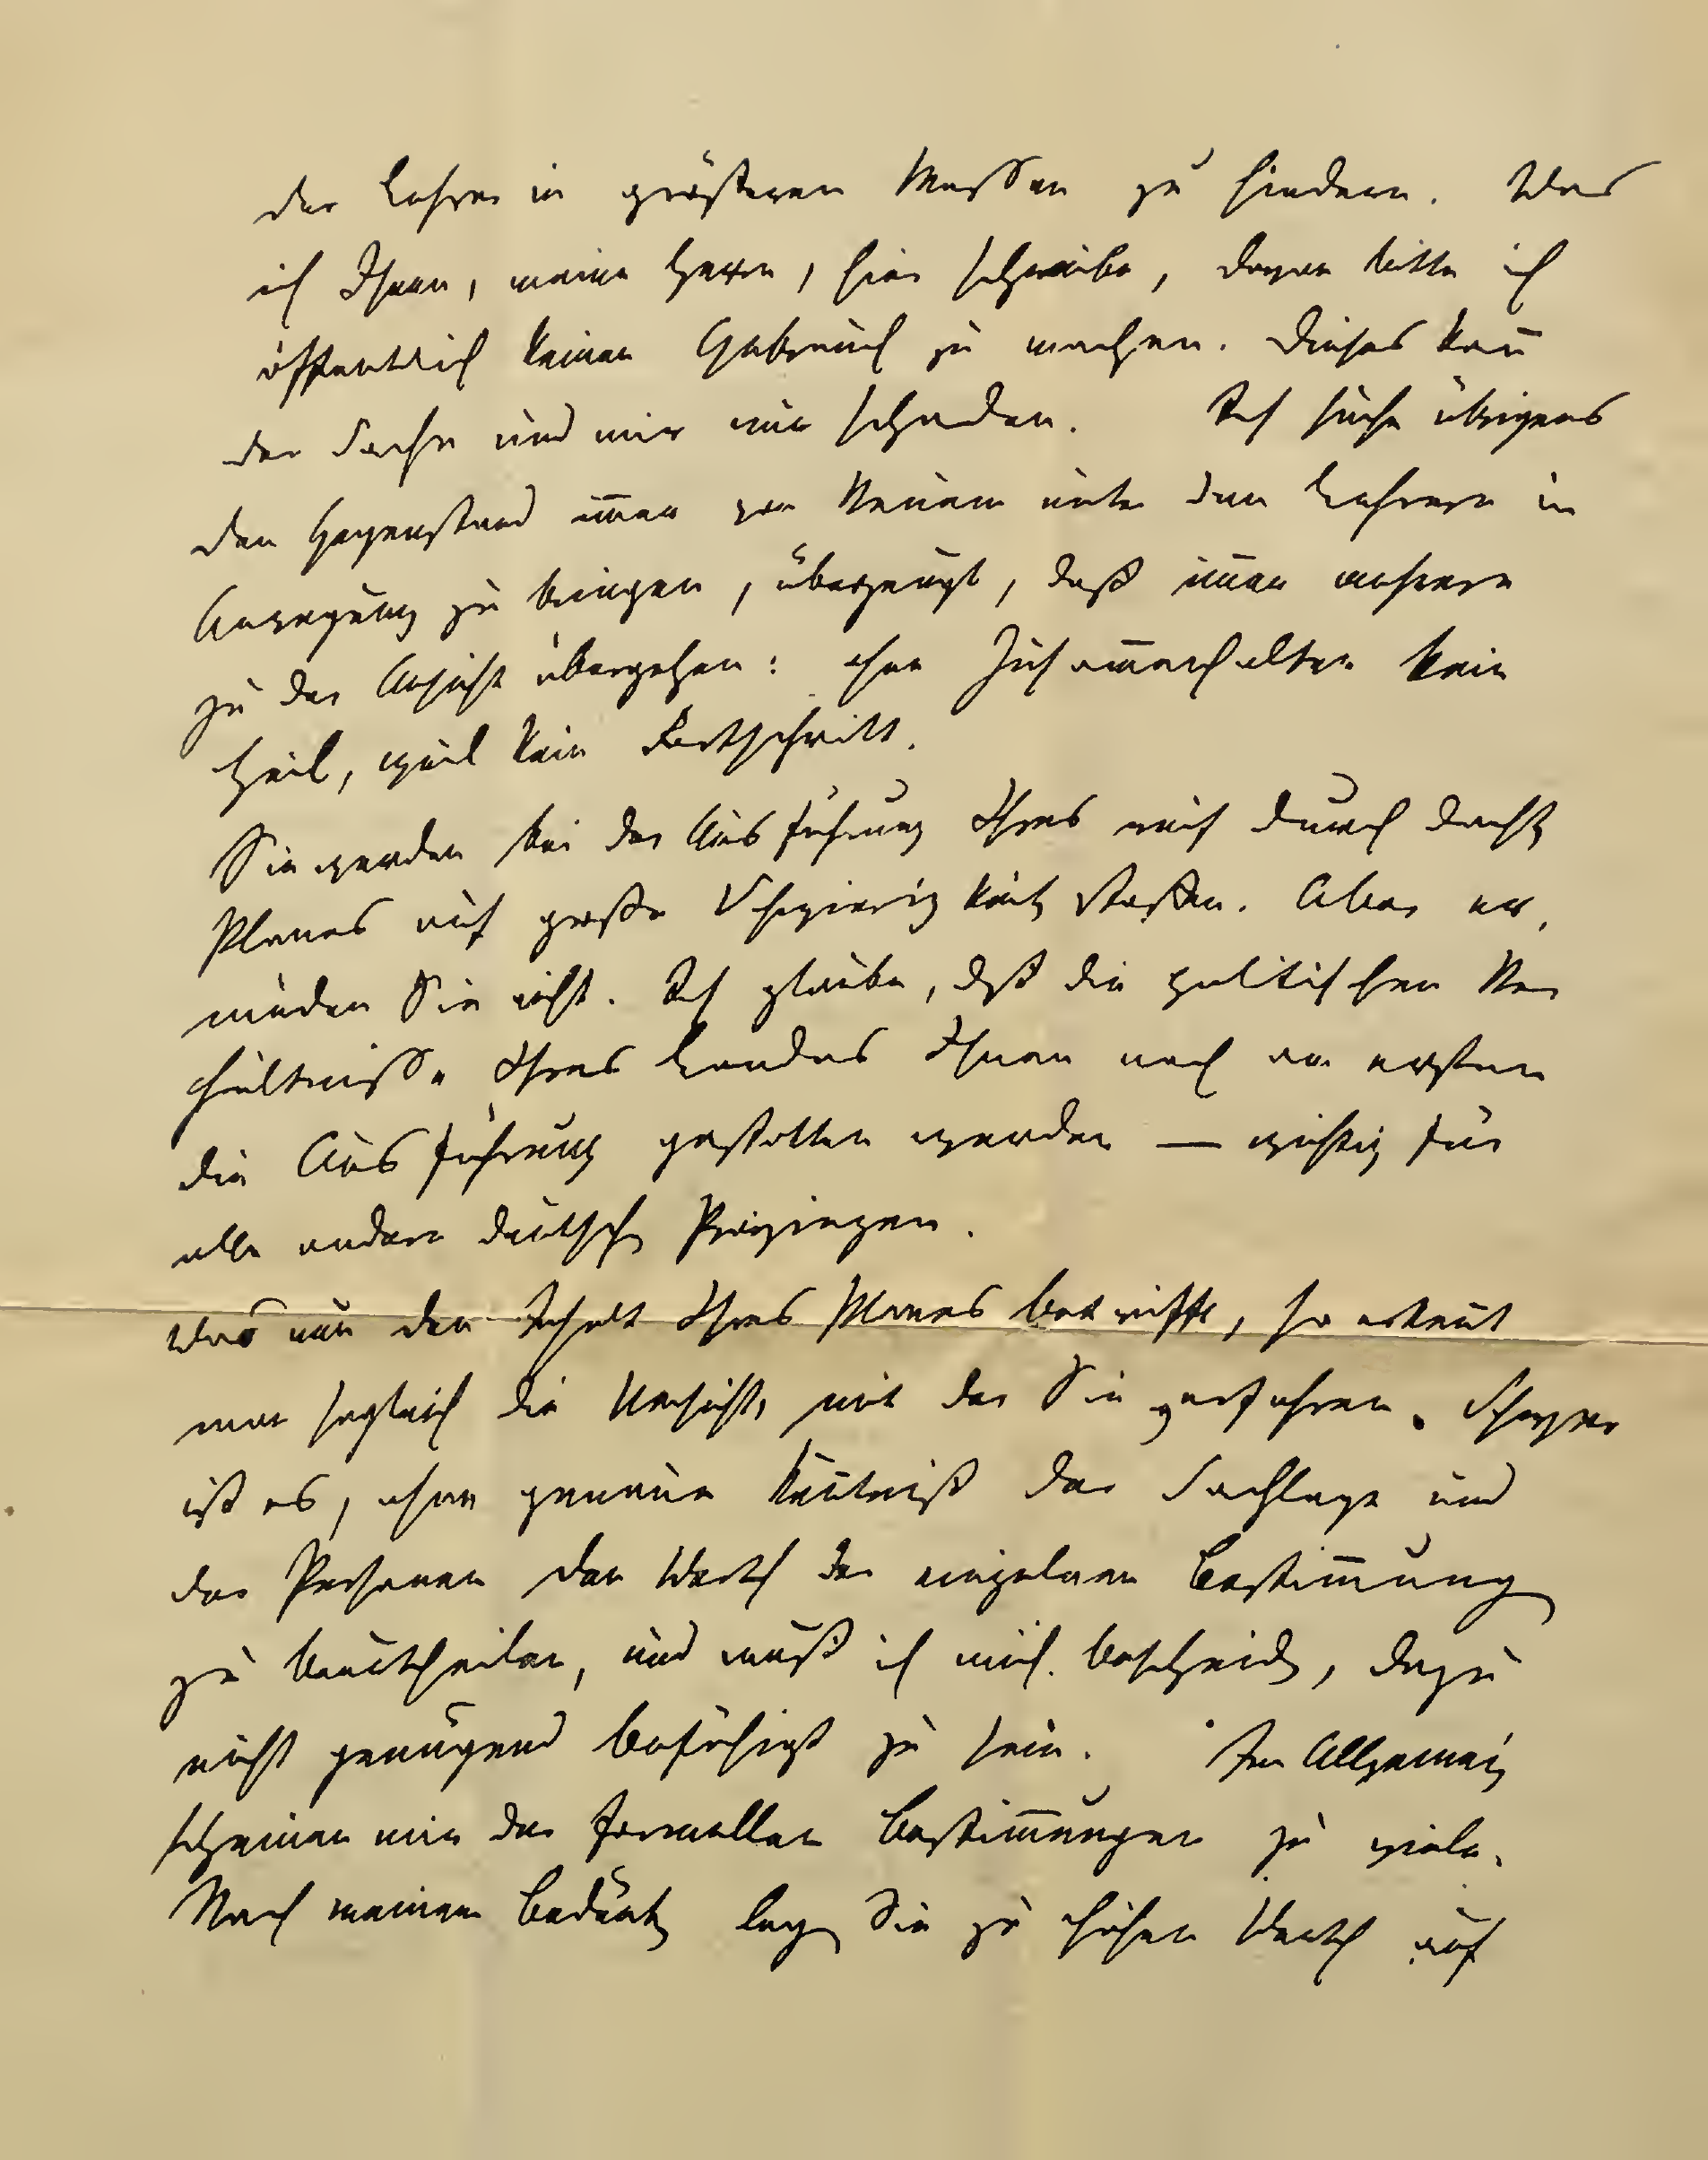 der Lehrer in größeren Massen zu hindern. Was
ich Ihnen, meine Herrn, hier schreibe, davon bitte ich
öffentlich keinen Gebrauch zu machen. Dieses kan̄
der Sache und mir nur schaden. Ich suche übrigens
den Gegenstand im̄er von Neuem unter den Lehrern in
Anregung zu bringen, überzeugt, daß im̄er mehrere
zu der Ansicht übergehen: ohne Zusam̄enhalten kein
Heil, weil kein Fortschritt.
Sie werden bei der Ausführung Ihres reif durchdacht
Planes auf große Schwierigkeit stoßen. Aber er,
müden Sie nicht. Ich glaube, daß die politischen Ver
hältnisse Ihres Landes Ihnen noch am ersten
die Ausführung gestatten werden — wichtig für
alle andern deutsch Provinzen.
Was nun den Inhalt Ihres Planes betrifft, so erken̄t
man sogleich die Umsicht, mit der Sie verfahren. Schwer
ist es, ohne genaue Ken̄tniß der Sachlage und
der Personen den Werth der einzelnen Bestim̄ung
zu beurtheilen, und muß ich mich bescheid, dazu
nicht genügend befähigt zu sein. Im Allgemein
scheinen mir der formellen Bestim̄ungen zu viele.
Nach meinem Bedünk leg Sie zu hohen Werth auf